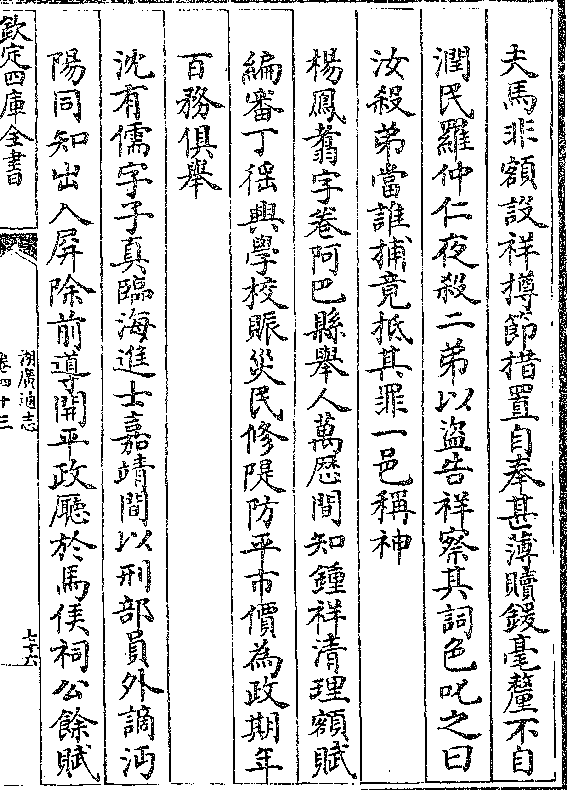 夫馬非額設祥撙節措置自奉甚薄贖鍰毫釐不自
潤民羅仲仁夜殺二弟以盜告祥察其詞色叱之曰
汝殺弟當誰捕竟抵其罪一邑稱神
楊鳳翥字卷阿巴縣舉人萬歴間知鍾祥清理額賦
編審丁徭興學校賑災民修隄防平市價為政期年
百務俱舉
沈有儒字子真臨海進士嘉靖間以刑部員外謫沔
陽同知出入屏除前導開平政廳於馬侯祠公餘賦
欽定四庫全書
湖廣通志
卷四十三
七十六